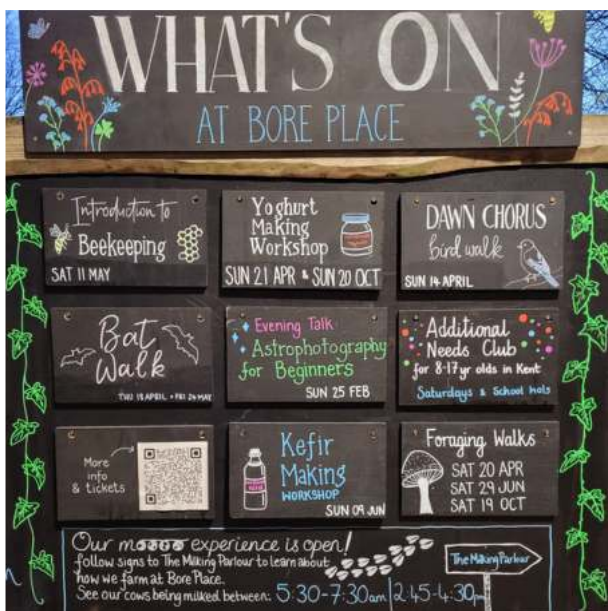 WHAT'S ON
AT BORE PLACE
Introduction to
Beekeeping
SAT 11 MAY
Yoghurt
Making
Workshop
SUN 21 APR & SUN 20 OCT
DAWN CHORUS
bird walk
SUN 14 APRIL
Bat
Walk
THU 18 APRIL + FRI 24 MAY
Evening Talk
Astrophotography
for Beginners
SUN 25 FEB
Additional
Needs Club
for 8-17yr olds in Kent
Saturdays & School hols
More
info
& tickets
Kefir
Making
WORKSHOP
SUN 09 JUN
Foraging Walks
SAT 20 APR
SAT 29 JUN
SAT 19 OCT
Our experience is open!
follow signs to The Milking Parlour to learn about
how we farm at Bore Place.
See our cows being milked between: 5:30-7:30am | 2:45-4:30pm
The Milking Parlour